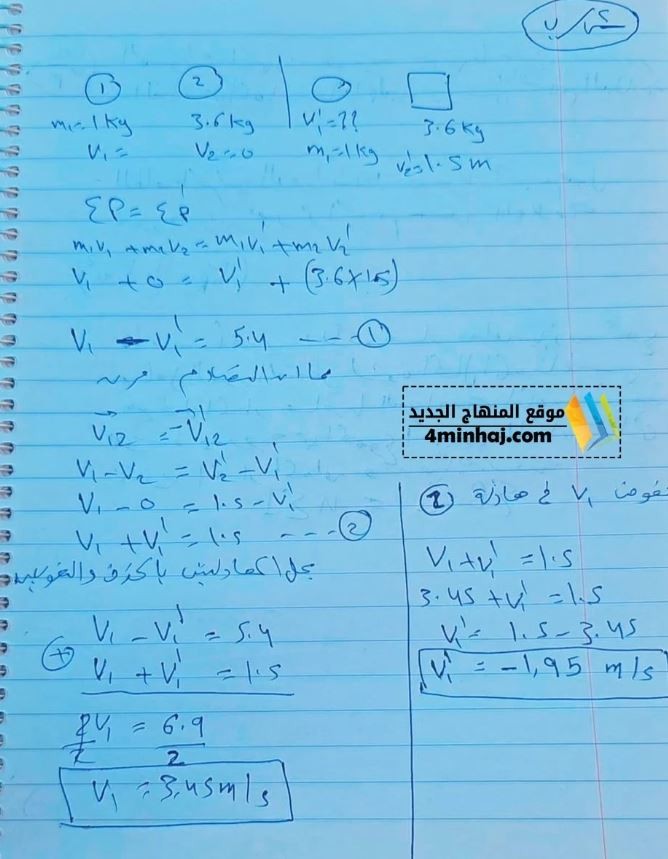 ① ② 
m₁=1kg 3.6kg V₁'=?? 3.6kg
V₁= V₂=0 m₁=1kg V₂'=1.5m
ΣP=ΣP'
m₁V₁+m₂V₂=m₁V₁'+m₂V₂'
V₁ + 0 = V₁' + (3.6×1.5)
V₁ - V₁' = 5.4 ---- ①
بما ان التصادم مرن
V₁₂ = -V₁₂'
V₁-V₂ = V₂'-V₁'
V₁-0 = 1.5-V₁'
V₁+V₁'=1.5 ---- ②
بحل المعادلتين بالحذف والتعويض
V₁-V₁' = 5.4
+ V₁+V₁' = 1.5
2V₁/2 = 6.9/2
V₁ = 3.45m/s
نعوض V₁ في معادلة ②
V₁+V₁' = 1.5
3.45+V₁' = 1.5
V₁' = 1.5-3.45
V₁' = -1,95 m/s
موقع المنهاج الجديد
4minhaj.com